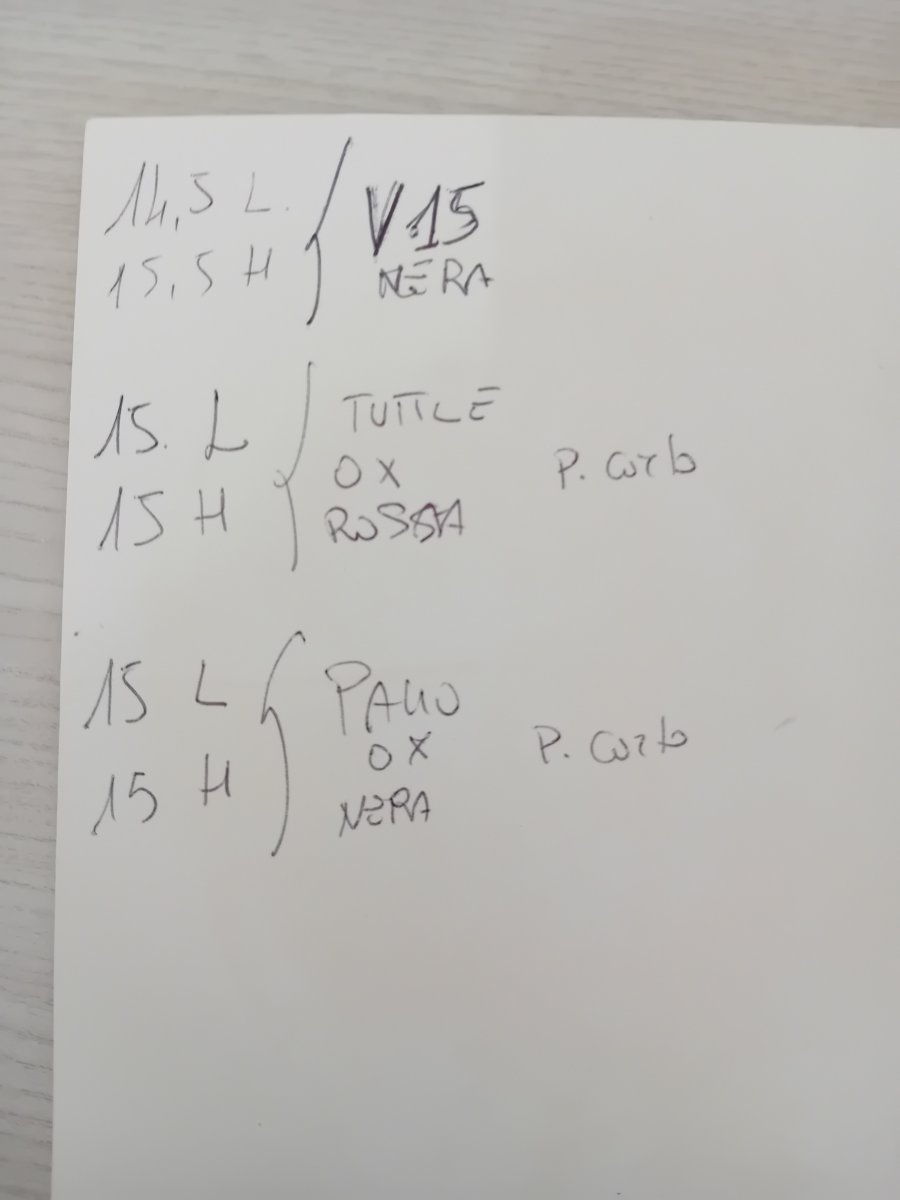 14,5 L.
15,5 H
V.15
NERA
15. L
15 H
TUTTLE
OX
ROSSA
P. corto
15 L
15 H
PALIO
OX
NERA
P. corto